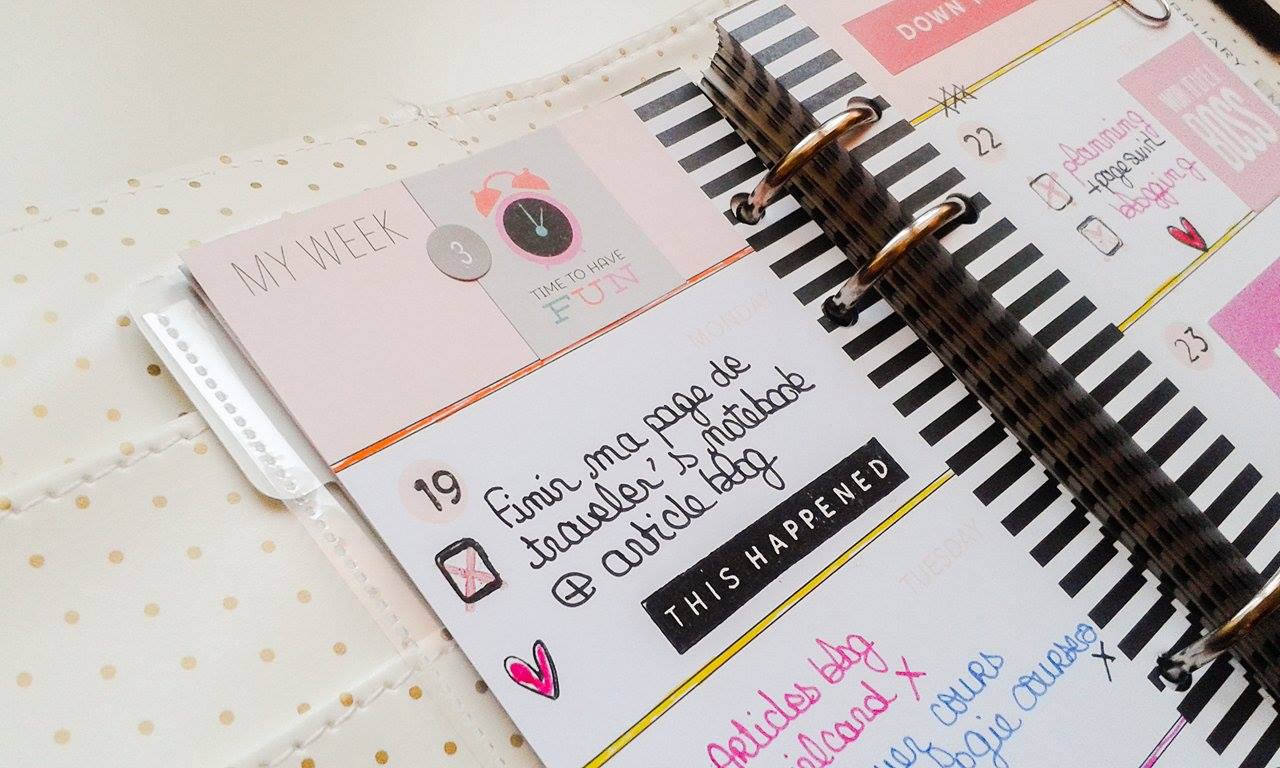 MY WEEK
3
TIME TO HAVE
FUN
MONDAY
19
Finir ma page de
traveler's notebook
+ article blog
THIS HAPPENED
TUESDAY
Articles blog
cours
DOWN
22
planning
+ page suivi
blogging
BOSS
23